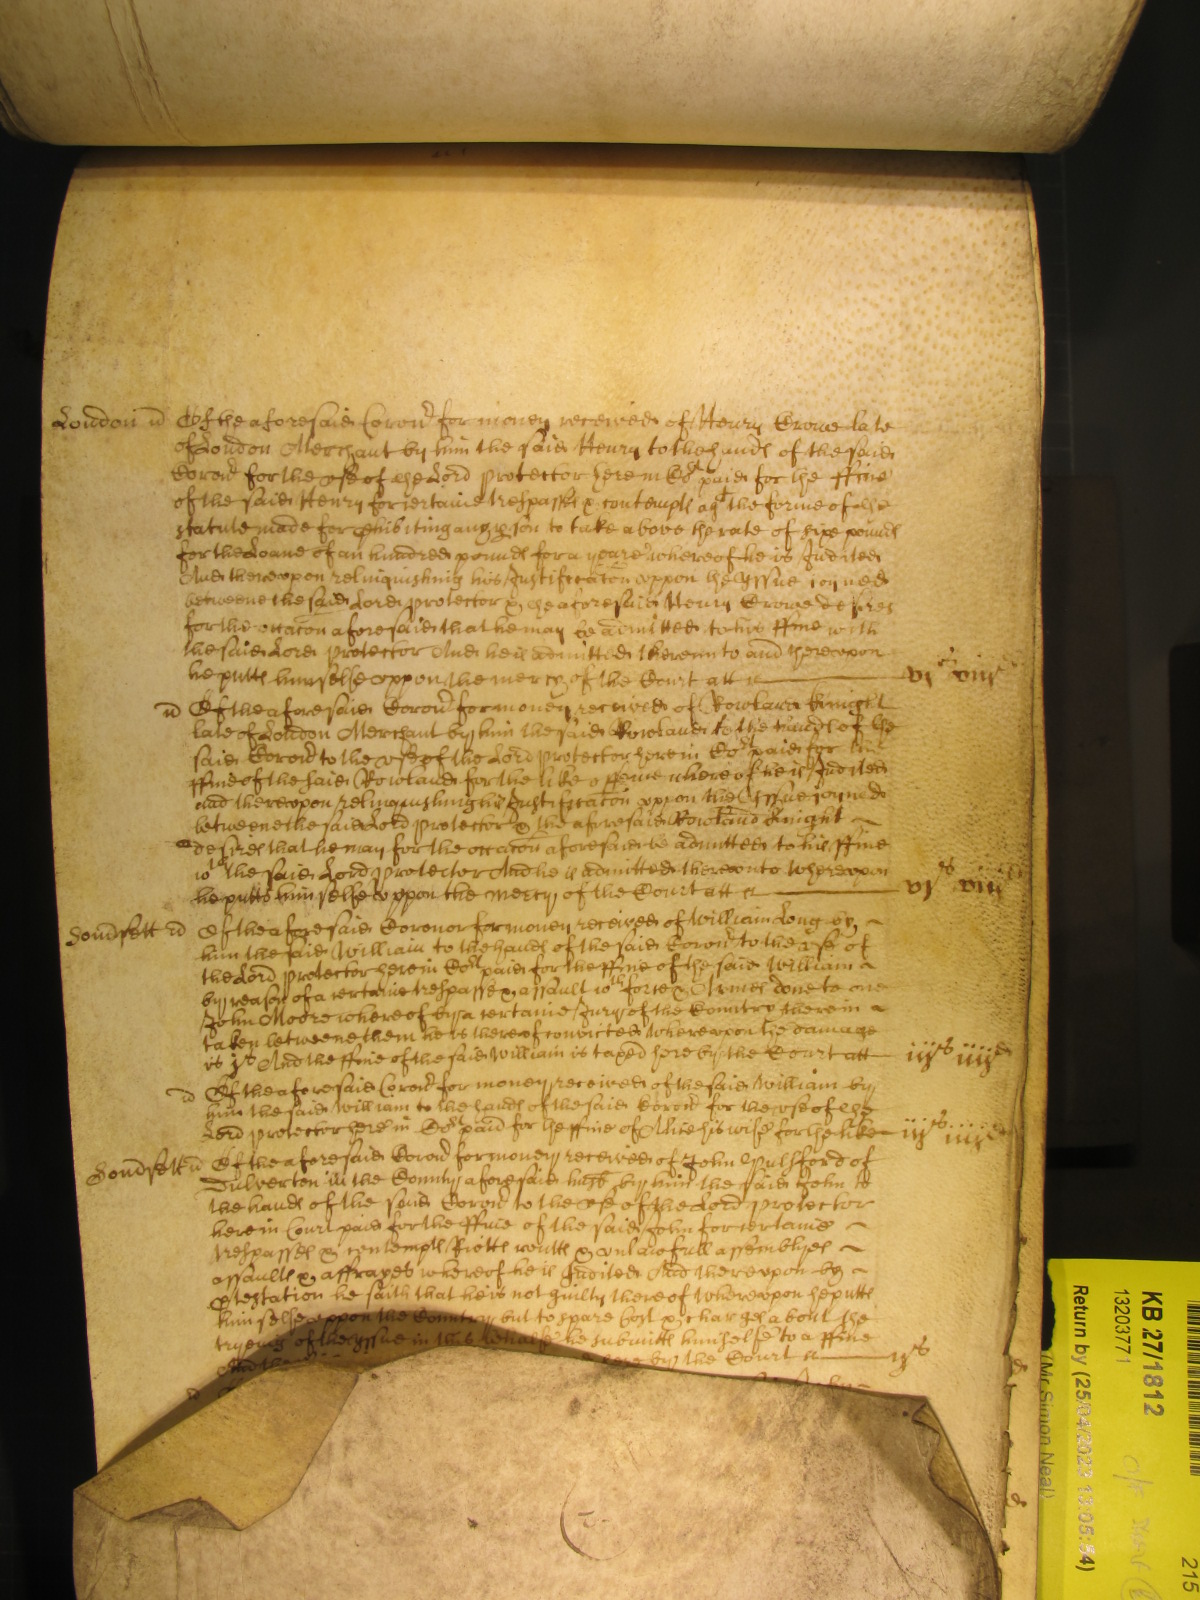 London ss Of the aforesaid Coron^r for money received of Henry Crowe late
of London Merchant by him the said Henry to the hands of the said
Coron^r for the use of the Lord Protector here in Co^rt paid for the ffine
of the said Henry for certaine trespasses & contempts ag^t the forme of the
statute made for any pson to take above the rate of sixe pounds
for the Loane of an hundred pounds for a yeare whereof he is Indited
And thereupon relinquishing his Justificacon uppon the yssue ioyned
betweene the said Lord Protector & the aforesaid Henry Crowe desires
for the occacon aforesaid that he may be admitted to his ffine with
the said Lord Protector And he is admitted thereunto and thereupon
he putts himselfe uppon the mercy of the Court att vi^s viii^d
Of the aforesaid Coron^r for money received of Rowland Knight
late of London Merchant by him the said Rowland to the hands of the
said Coron^r to the use of the Lord Protector here in Co^rt paid for the
ffine of the said Rowland for the like offence whereof he is Indited
and thereupon relinquishing his Justificacon uppon the yssue ioyned
betweene the said Lord Protector & the aforesaid Rowland Knight
desires that he may for the occacon aforesaid be admitted to his ffine
w^th the said Lord Protector And he is admitted thereunto whereupon
he putts himselfe uppon the mercy of the Court att vi^s viii^d
Somsett ss Of the aforesaid Coronor for money received of William Long by
him the said William to the hands of the said Coron^r to the use of
the Lord Protector here in Co^rt paid for the ffine of the said William
by reason of a certaine trespasse & assault w^th force & Armes done to one
John Moore whereof by a certaine Jury of the Country therein
taken betweene them he is thereof convicted whereupon the damage
is And the ffine of the said William is taxed here by the Court att iij^s iiij^d
Of the aforesaid Coron^r for money received of the said William by
him the said William to the hands of the said Coron^r for the use of the
Lord Protector here in Co^rt paid for the ffine of Alice his wife for the like iij^s iiij^d
Somsett ss Of the aforesaid Coron^r for money received of John Pulsford of
Dulverton in the County aforesaid husb by him the said John to
the hands of the said Coron^r to the use of the Lord Protector
here in Court paid for the ffine of the said John for certaine
trespasses & contempts Riotts routts & unlawfull assemblyes
assaults & affrayes whereof he is Indited And thereupon by
ptestation he saith that he is not guilty thereof whereupon he putts
himselfe uppon the Country but to spare cost & charges about the
tryeing of the yssue in this behalfe he submitts himselfe to a ffine
And here by the Court ij^s
KB 27/1812
13203771
Return by (25/04/2023 13:05:54)
(Mr Simon Neal)
215